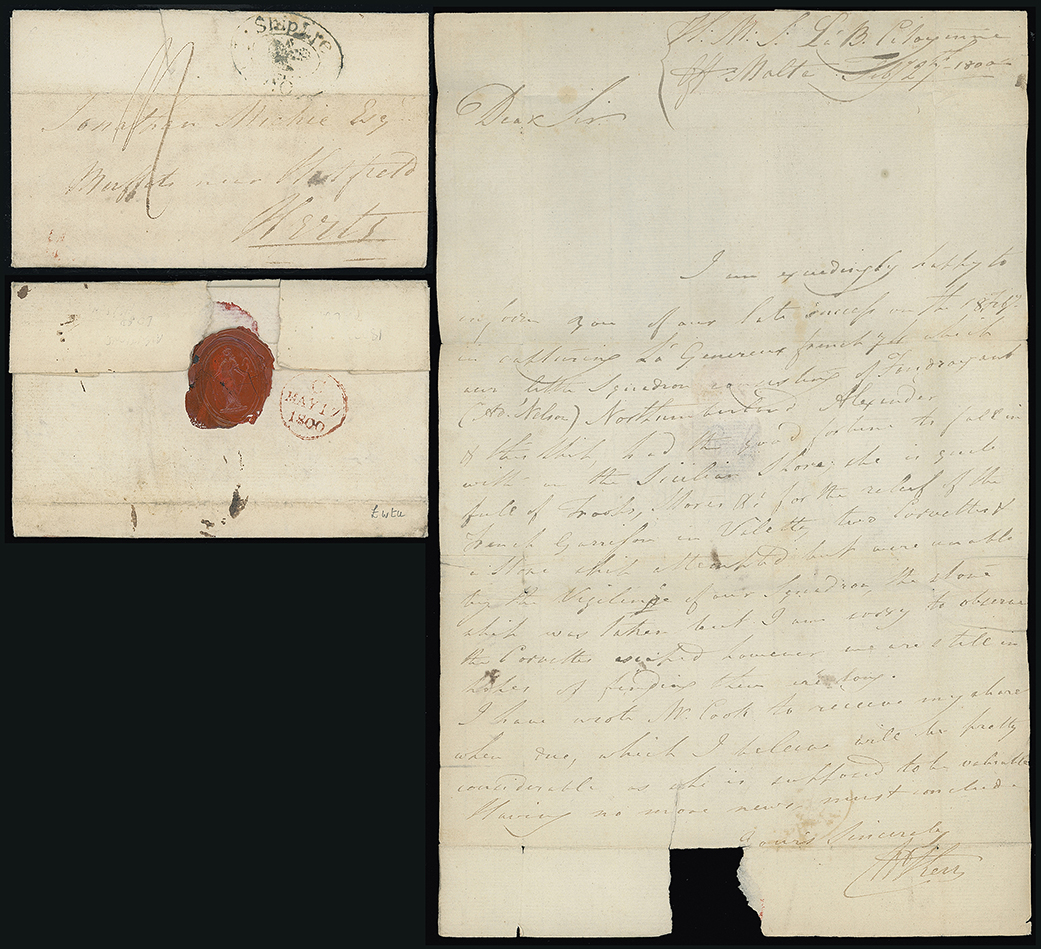 Ship Lre
Jonathan Michie Esqr
near Hatfield
Herts
C
MAY 17
1800
H: M: S: La B. Citoyenne
off Malta Feby 27th 1800
Dear Sir
I am exceedingly happy to
inform you of our late success on the 18th
in capturing Le Genereux french 74 which
our little Squadron consisting of Foudroyant
(Ad. Nelson) Northumberland Alexander
& this Ship, had the good fortune to fall in
with on the Sicilian Shore, she is quite
full of Troops, Stores &c for the relief of the
French Garrison in Valetta, two Corvettes &
a Store ship attempted but were unable
by the Vigilence of our Squadron, the store
ship was taken but I am sorry to observe
the Corvettes escaped however we are still in
hopes of finding them
I have wrote Mr Cook to receive my share
when due, which I believe will be pretty
considerable as she is supposed to be valuable
Having no more news must conclude.
Yours Sincerely
Kerr